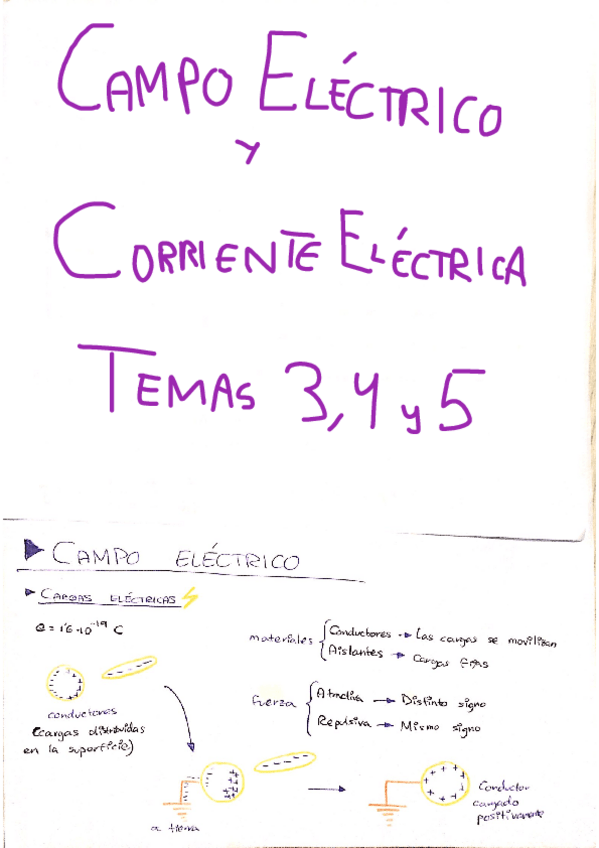 CAMPO ELÉCTRICO
Y
CORRIENTE ELÉCTRICA
TEMAS 3, 4 y 5
CAMPO ELÉCTRICO
CARGAS ELÉCTRICAS
e = 1'6·10⁻¹⁹ C
materiales
Conductores → Las cargas se movilizan
Aislantes → Cargas fijas
fuerza
Atractiva → Distinto signo
Repulsiva → Mismo signo
conductores
(cargas distribuidas
en la superficie)
a tierra
Conductor
cargado
positivamente